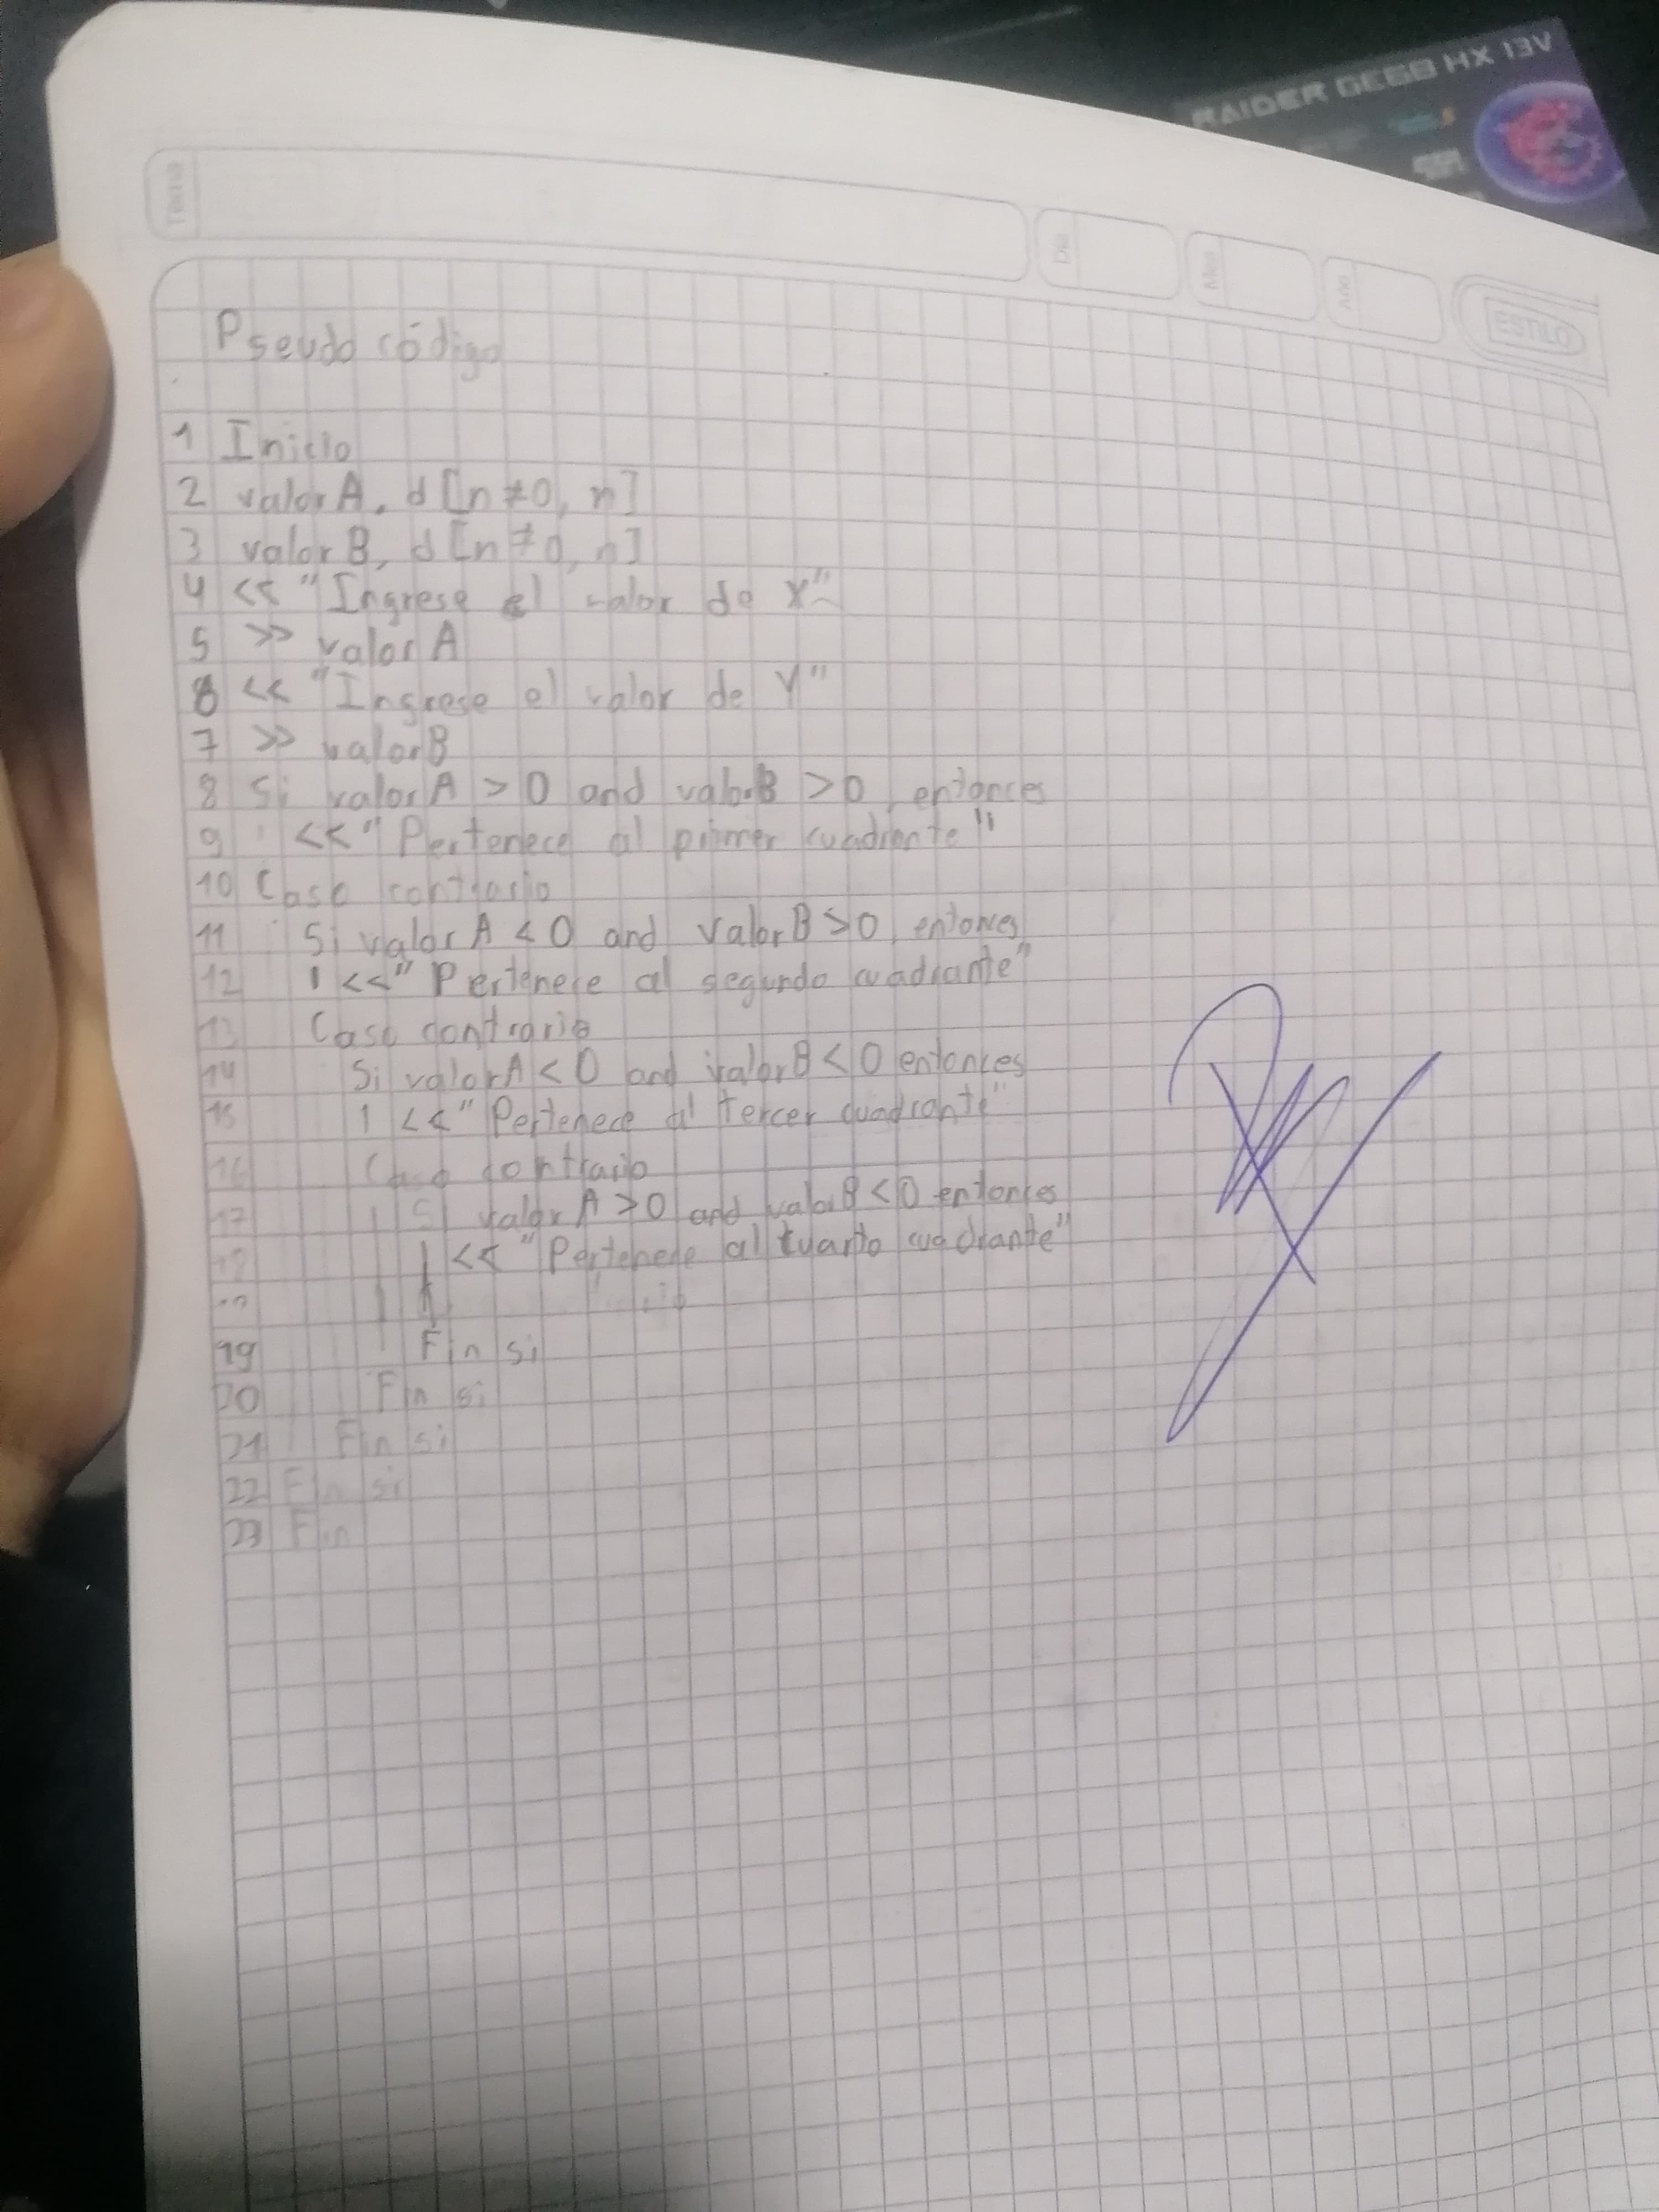 RAIDER GE68 HX 13V
Tema
Día
Mes
Año
ESTILO
Pseudo código
1 Inicio
2 valorA, d [n≠0, n]
3 valorB, d [n≠0, n]
4 << "Ingrese el valor de X"
5 >> valorA
6 << "Ingrese el valor de Y"
7 >> valorB
8 Si valorA > 0 and valorB > 0, entonces
9 << "Pertenece al primer cuadrante"
10 Caso contrario
11 Si valorA < 0 and valorB > 0, entonces
12 << "Pertenece al segundo cuadrante"
13 Caso contrario
14 Si valorA < 0 and valorB < 0 entonces
15 << "Pertenece al tercer cuadrante"
16 Caso contrario
17 Si valorA > 0 and valorB < 0 entonces
18 << "Pertenece al cuarto cuadrante"
19 Fin si
20 Fin si
21 Fin si
22 Fin si
23 Fin